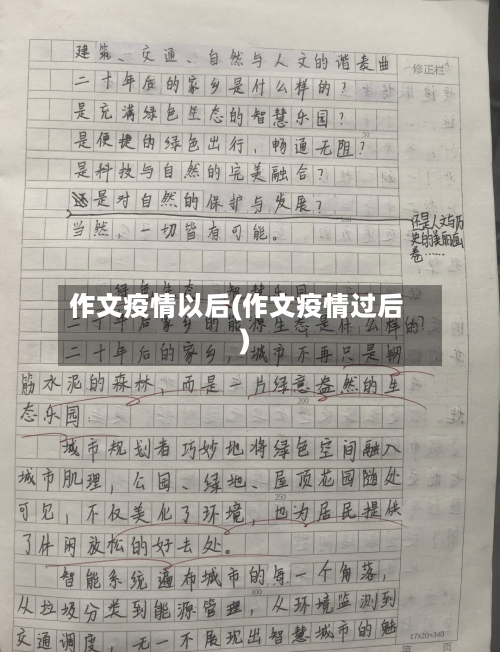 建筑、交通、自然与人文的谐奏曲
修正栏
二十年后的家乡是什么样的?
是充满绿色生态的智慧乐园?
50
是便捷的绿色出行,畅通无阻?
是科技与自然的完美融合?
是对自然的保护与发展?
还是人文与历
史的美丽画
卷……
当然,一切皆有可能。
作文疫情以后(作文疫情过后
)
二十年后家乡的能源生态是什么样的?
二十年后的家乡,城市不再只是钢
筋水泥的森林,而是一片绿意盎然的生
200
态乐园。
城市规划者巧妙地将绿色空间融入
城市肌理,公园、绿地、屋顶花园随处
250
可见,不仅美化了环境,也为居民提供
了休闲放松的好去处。
智能系统遍布城市的每一个角落,
300
从垃圾分类到能源管理,从环境监测到
交通调度,无一不展现出智慧城市的魅
17×20=340